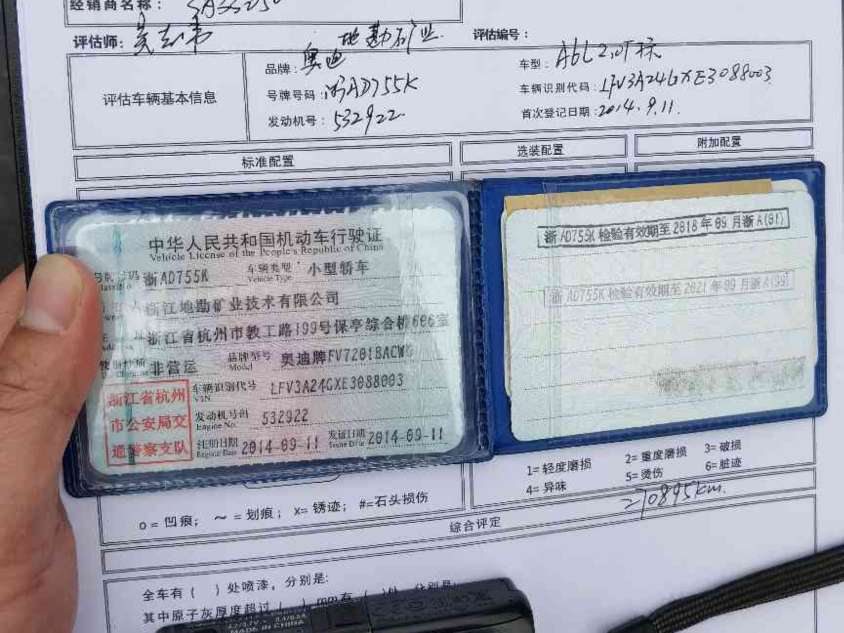 经销商名称：
评估师： 地勘矿业 评估编号：
评估车辆基本信息
品牌：奥迪 车型：A6L 2.0T标
号牌号码：浙AD755K 车辆识别代码：LFV3A24GXE3088003
发动机号：532922 首次登记日期：2014.9.11
标准配置 选装配置 附加配置
中华人民共和国机动车行驶证
Vehicle License of the People's Republic of China
浙AD755K 车辆类型 小型轿车
Vehicle Type
浙江地勘矿业技术有限公司
浙江省杭州市教工路199号保亭综合楼606室
非营运 品牌型号 奥迪牌FV7201BACWG
Model
浙江省杭州
市公安局交
通警察支队
车辆识别代号 LFV3A24GXE3088003
VIN
发动机号码 532922
Engine No.
注册日期 2014-09-11 发证日期 2014-09-11
Register Date Issue Date
浙AD755K 检验有效期至2018年09月浙A(01)
浙AD755K检验有效期至2021年09月浙A(99)
1=轻度磨损 2=重度磨损 3=破损
4=异味 5=烫伤 6=脏迹
o=凹痕； ～=划痕； X=锈迹； #=石头损伤
210895km.
综合评定
全车有（ ）处喷漆，分别是:
其中原子灰厚度超过（ ）mm有
MADE IN CHINA